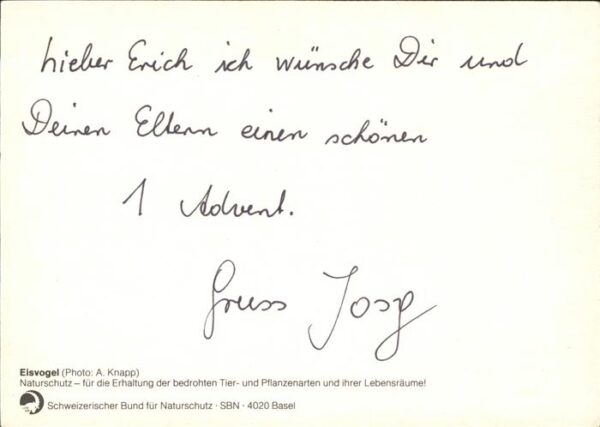 Lieber Erich ich wünsche Dir und
Deinen Eltern einen schönen
1 Advent.
Gruss Josef
Eisvogel (Photo: A. Knapp)
Naturschutz – für die Erhaltung der bedrohten Tier- und Pflanzenarten und ihrer Lebensräume!
Schweizerischer Bund für Naturschutz · SBN · 4020 Basel